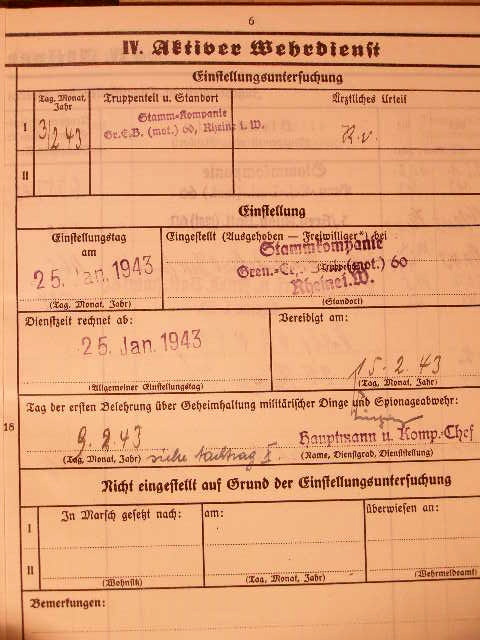 6
IV. Aktiver Wehrdienst
Einstellungsuntersuchung
Tag, Monat, Jahr
Truppenteil u. Standort
Ärztliches Urteil
I
3/2 43
Stamm-Kompanie
Gr.E.B. (mot.) 60, Rheine i. W.
K.v.
II
Einstellung
Einstellungstag
am
25. Jan. 1943
(Tag, Monat, Jahr)
Eingestellt (Ausgehoben — Freiwilliger*) bei
Stammkompanie
Gren. (mot.) 60
Rheine i. W.
(Standort)
Dienstzeit rechnet ab:
25. Jan. 1943
(Allgemeiner Einstellungstag)
Vereidigt am:
15. 2. 43
(Tag, Monat, Jahr)
18
Tag der ersten Belehrung über Geheimhaltung militärischer Dinge und Spionageabwehr:
9. 2. 43
(Tag, Monat, Jahr) siehe Nachtrag I.
Hauptmann u. Komp.-Chef
(Name, Dienstgrad, Dienststellung)
Nicht eingestellt auf Grund der Einstellungsuntersuchung
In Marsch gesetzt nach:
am:
überwiesen an:
I
II
(Wohnsitz)
(Tag, Monat, Jahr)
(Wehrmeldeamt)
Bemerkungen: